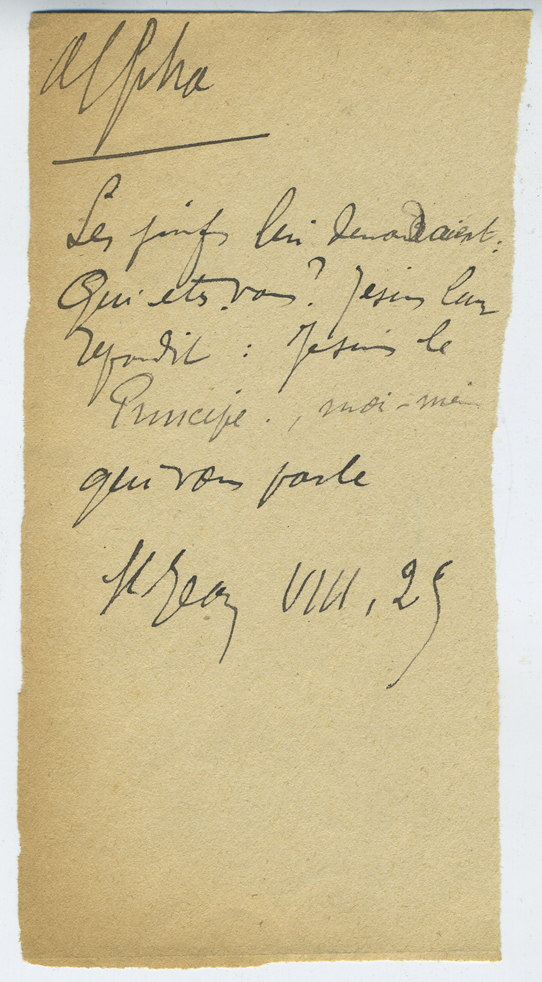 Alpha
Les juifs lui demandaient :
Qui etes vous ? Jesus leur
repondit : Je suis le
Principe . , moi-même
qui vous parle
St Jean VIII, 25